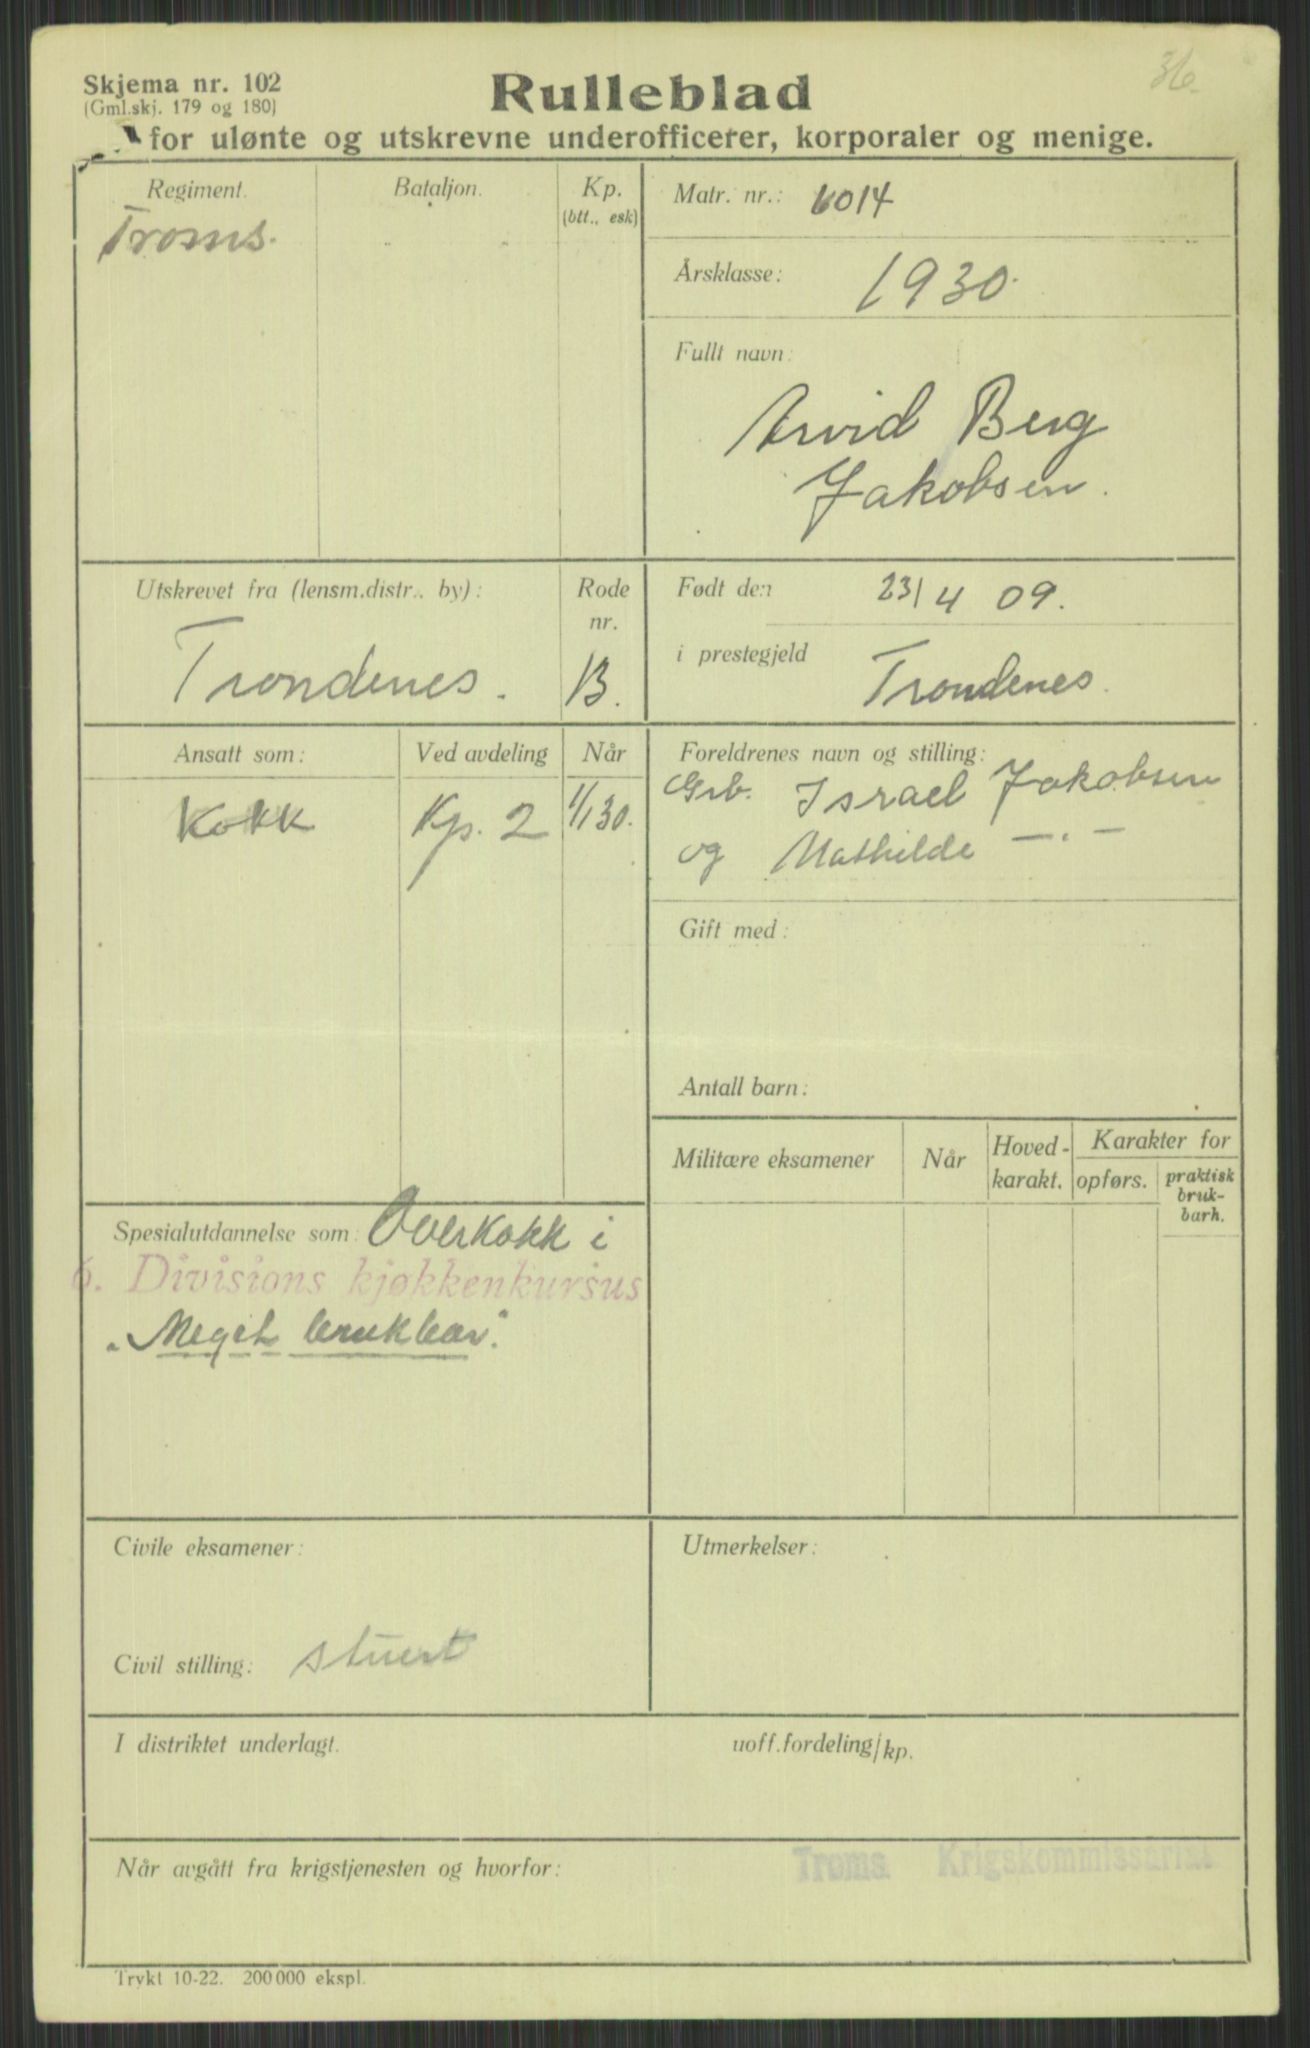 36.
Skjema nr. 102
(Gml.skj. 179 og 180)
Rulleblad
for ulønte og utskrevne underofficerer, korporaler og menige.
Regiment.
Troms.
Bataljon.
Kp.
(btt., esk)
Matr. nr.: 6014
Årsklasse: 1930.
Fullt navn:
Arvid Berg
Jakobsen.
Utskrevet fra (lensm.distr., by):
Trondenes.
Rode
nr.
B.
Født den 23/4 09.
i prestegjeld Trondenes.
Ansatt som:
Kokk
Ved avdeling
Kp. 2
Når
1/1 30.
Foreldrenes navn og stilling:
Grb. Israel Jakobsen
og Mathilde —"—
Gift med:
Antall barn:
Militære eksamener
Når
Hoved-
karakt.
Karakter for
opførs.
praktisk
bruk-
barh.
Spesialutdannelse som: Overkokk i
6. Divisions kjøkkenkursus
"Meget brukbar".
Civile eksamener:
Civil stilling: stuert
Utmerkelser:
I distriktet underlagt.
uoff.fordeling/kp.
Når avgått fra krigstjenesten og hvorfor:
Troms Krigskommissariat
Trykt 10-22. 200 000 ekspl.